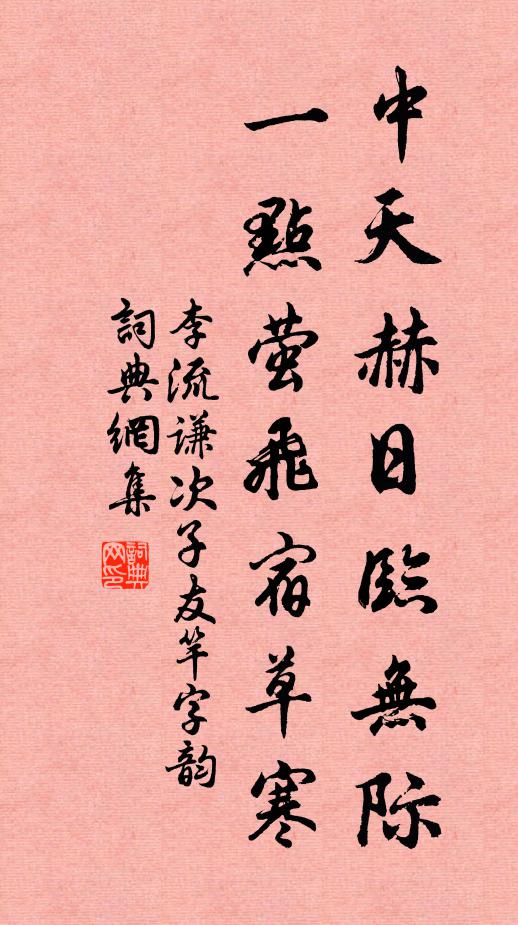 中天赫日臨無际
一點萤飛宿草寒
李流谦次子友竿字韵
詞典網集
詞典网印